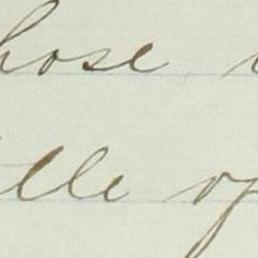 hose
lle op